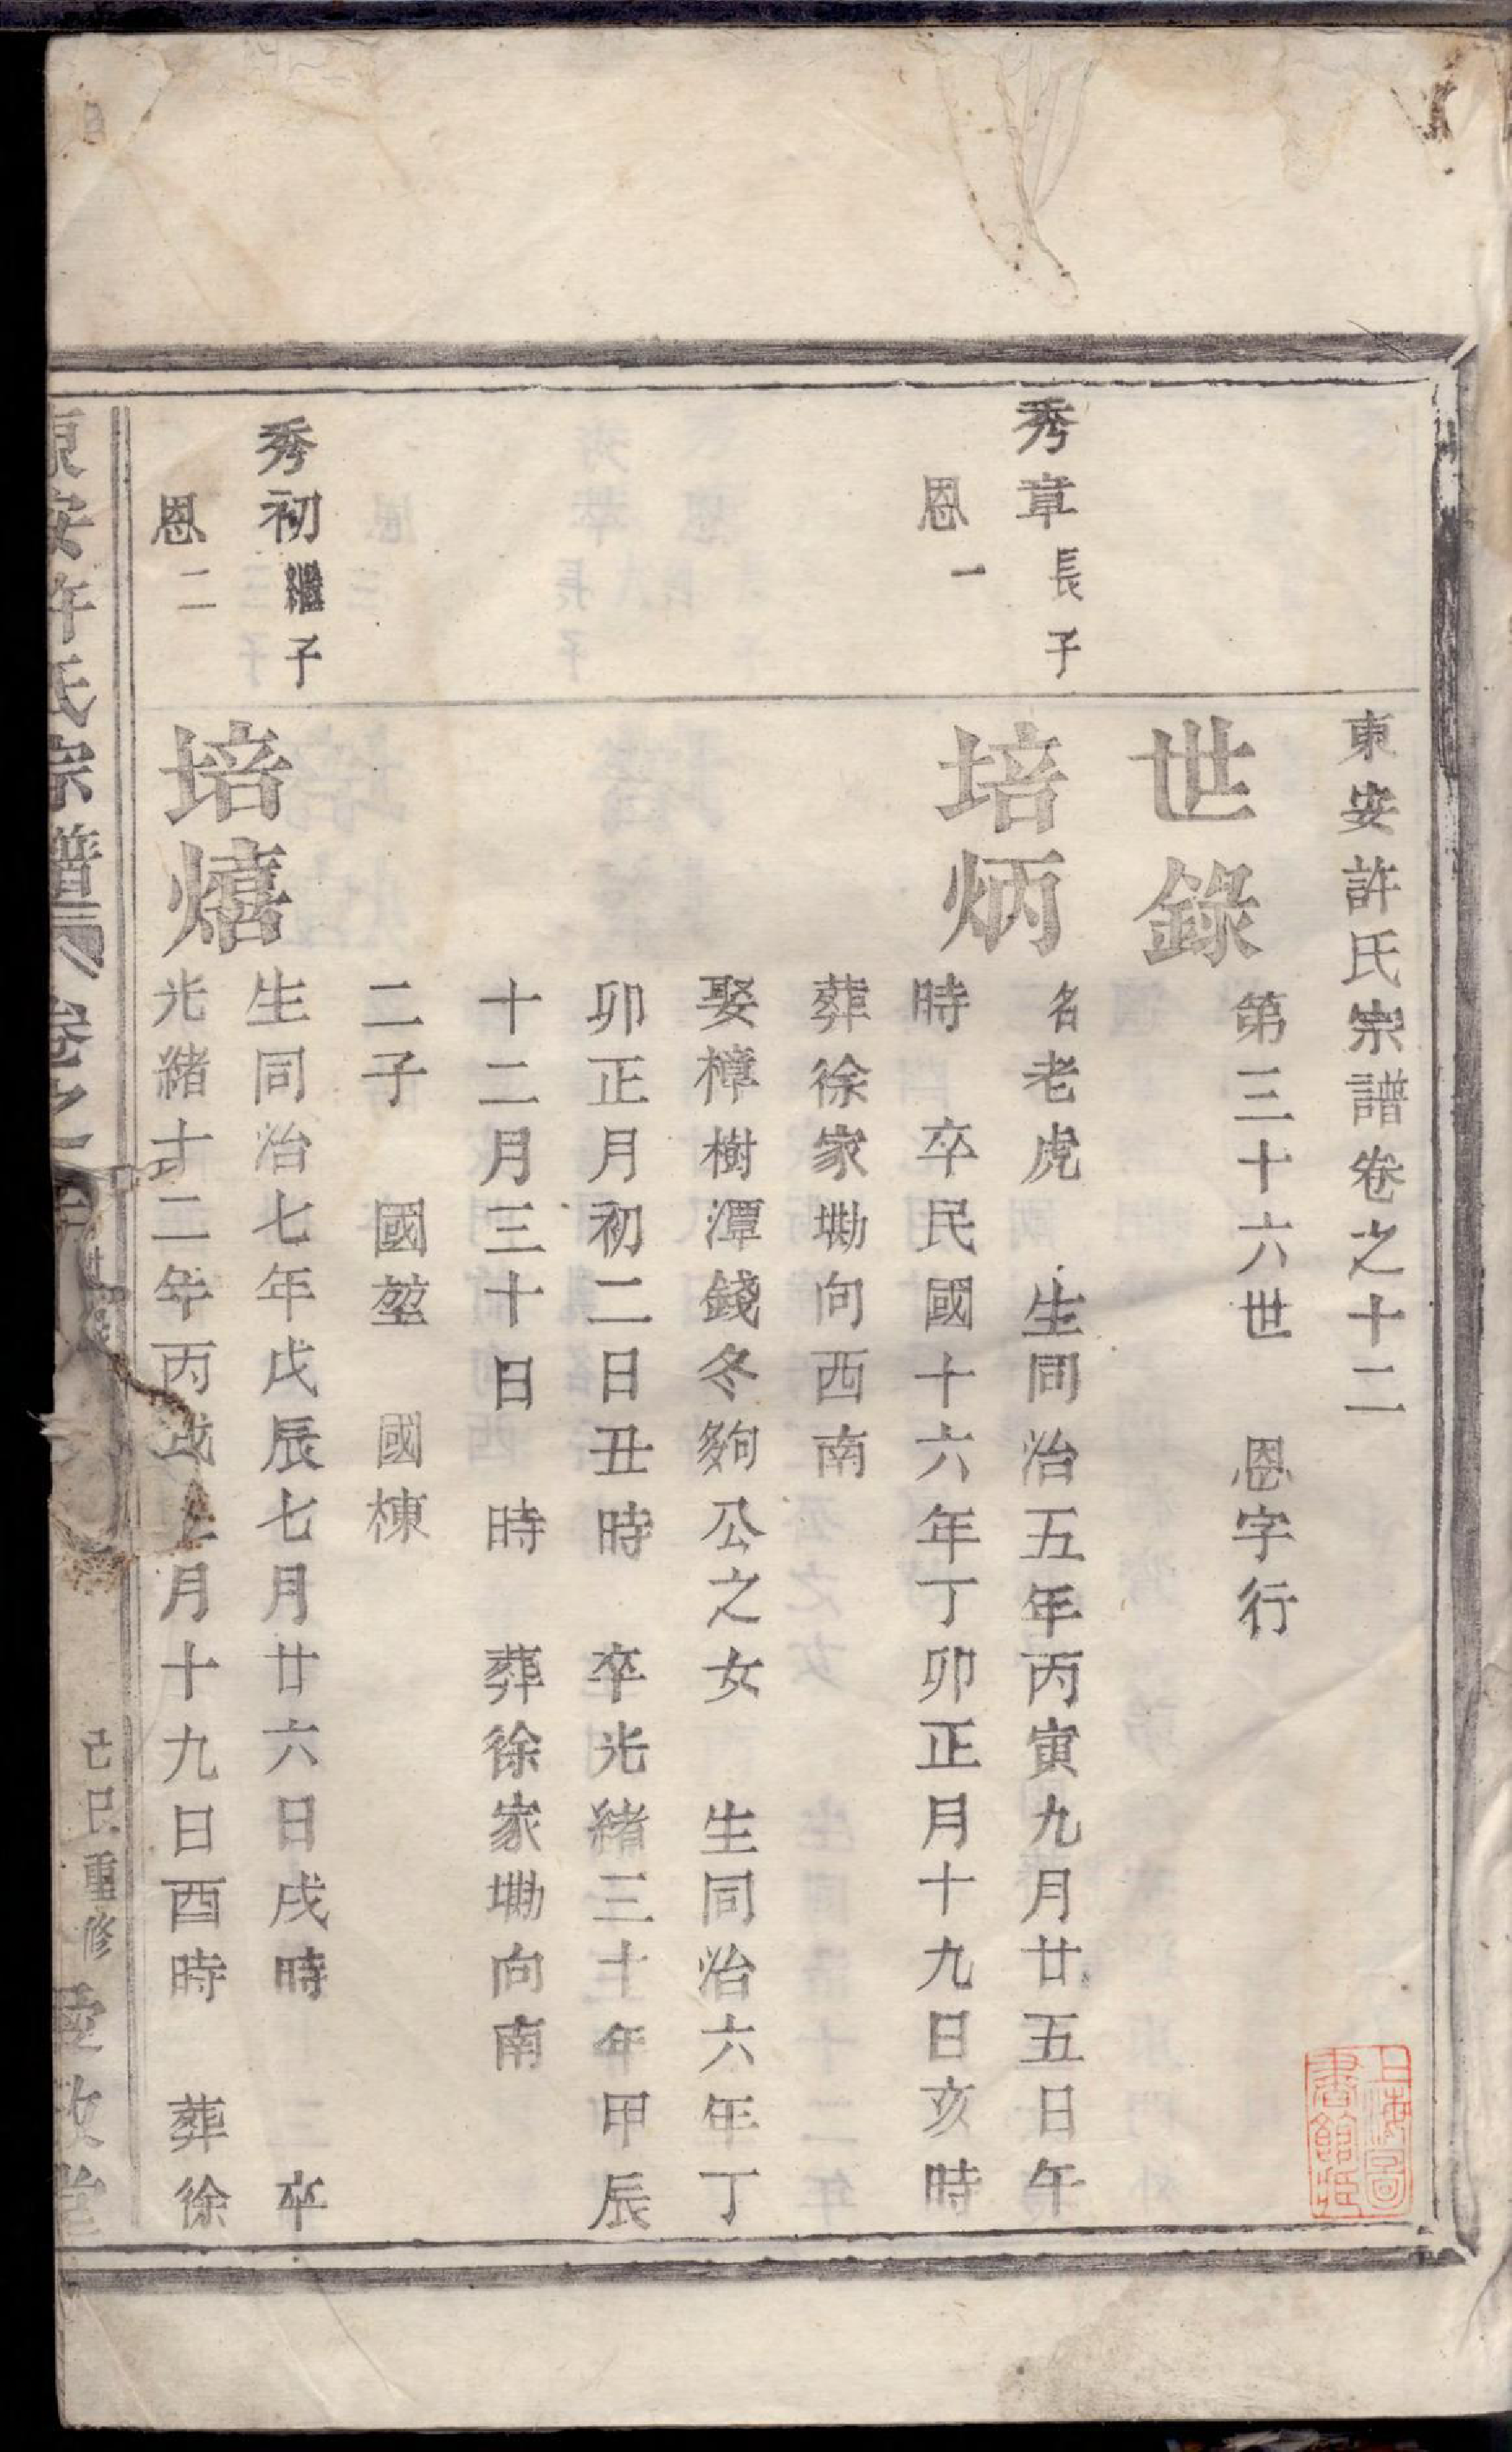 東安許氏宗譜卷之十二
世錄
第三十六世　恩字行
秀章長子
恩一
培炳
名老虎　生同治五年丙寅九月廿五日午
時　卒民國十六年丁卯正月十九日亥時
葬徐家塝向西南
娶樟樹潭錢冬夠公之女　生同治六年丁
卯正月初二日丑時　卒光緒三十年甲辰
十二月三十日　時　葬徐家塝向南
二子　國堃　國棟
秀初繼子
恩二
培熺
生同治七年戊辰七月廿六日戌時　卒
光緒十二年丙戌　月十九日酉時　葬徐
東安許氏宗譜　卷之
己巳重修　愛敬堂
上海圖書館藏